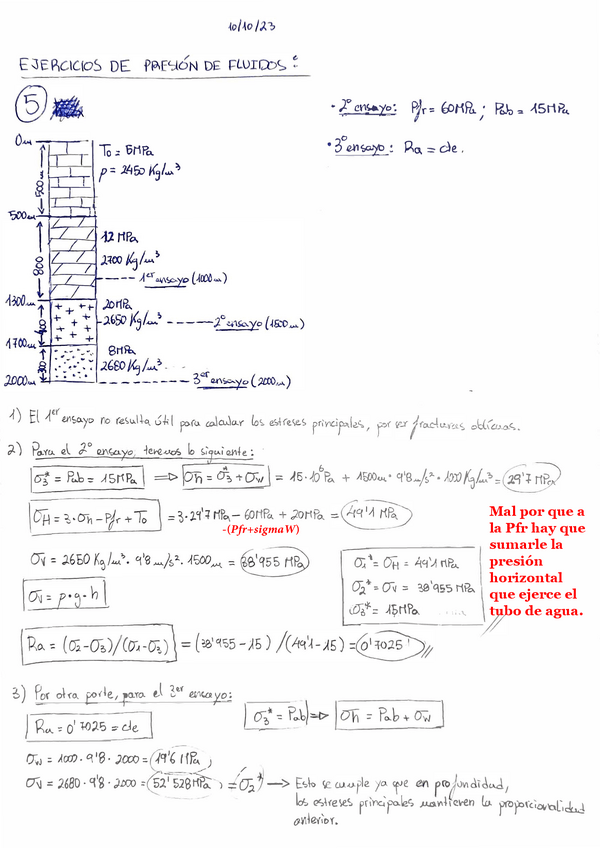 10/10/23
EJERCICIOS DE PRESIÓN DE FLUIDOS:
5
• 2º ensayo: Pfr = 60MPa ; Pab = 15MPa
• 3º ensayo: Ra = cte.
0m
T₀ = 5MPa
ρ = 2450 Kg/m³
500
500m
12 MPa
2700 Kg/m³
800
1er ensayo (1000m)
1300m
20MPa
2650 Kg/m³
400
2º ensayo (1500m)
1700m
8MPa
2680 Kg/m³
300
2000m
3er ensayo (2000m)
1) El 1er ensayo no resulta útil para calcular los estreses principales, por ver fracturas oblicuas.
2) Para el 2º ensayo, tenemos lo siguiente:
σ₃* = Pab = 15MPa ⟹ σh = σ₃* + σw = 15·10⁶Pa + 1500m · 9'8m/s² · 1000Kg/m³ = 29'7 MPa
σH = 3·σh - Pfr + T₀ = 3·29'7MPa - 60MPa + 20MPa = 49'1 MPa
-(Pfr+sigmaW)
Mal por que a
la Pfr hay que
sumarle la
presión
horizontal
que ejerce el
tubo de agua.
σv = 2650 Kg/m³ · 9'8 m/s² · 1500m = 38'955 MPa
σv = ρ·g·h
σ₁* = σH = 49'1 MPa
σ₂* = σv = 38'955 MPa
σ₃* = 15MPa
Ra = (σ₂-σ₃)/(σ₁-σ₃) = (38'955-15) / (49'1-15) = 0'7025
3) Por otra parte, para el 3er ensayo:
Ra = 0'7025 = cte
σ₃* = Pab ⟹ σh = Pab + σw
σw = 1000 · 9'8 · 2000 = 19'6 MPa
σv = 2680 · 9'8 · 2000 = 52'528MPa = σ₂* → Esto se cumple ya que en profundidad,
los estreses principales mantienen la proporcionalidad
anterior.